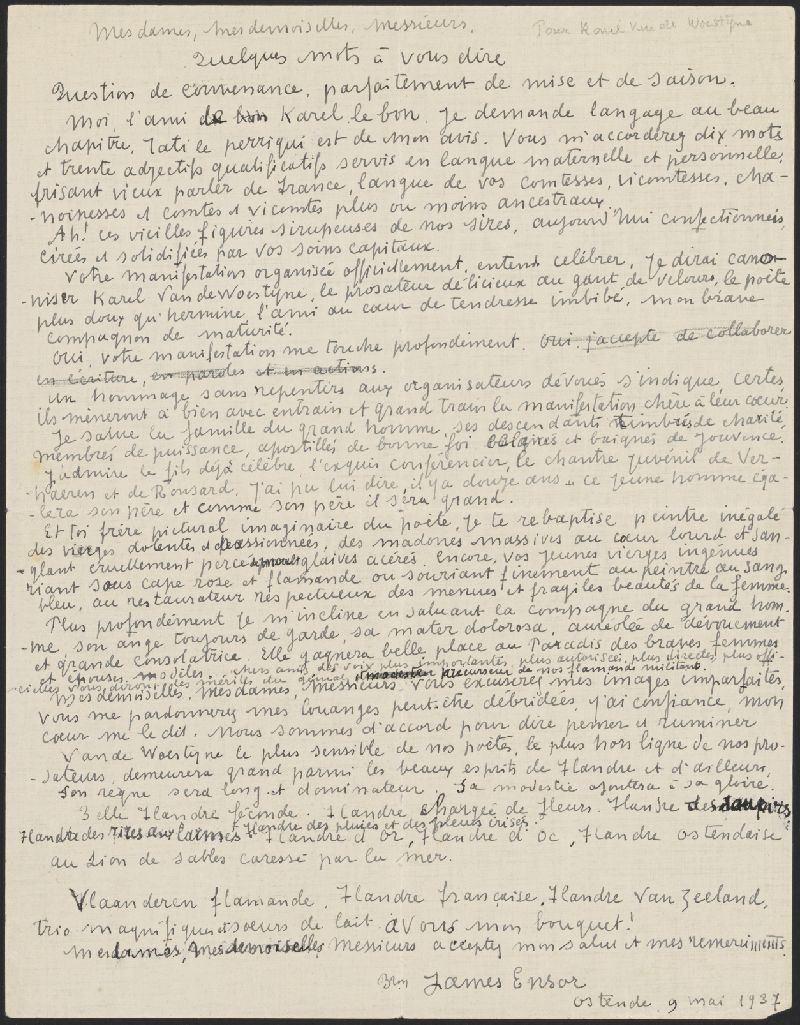 Mesdames, Mesdemoiselles, Messieurs.
Pour Karel Van de Woestyne
Quelques mots à vous dire
Question de convenance, parfaitement de mise et de saison.
Moi, l'ami Karel le bon. Je demande langage au beau
chapitre, Tati le perriqui est de mon avis. Vous m'accorderez dix mots
et trente adjectifs qualificatifs servis en langue maternelle et personnelle,
frisant vieux parler de France, langue de vos comtesses, vicomtesses, cha-
-noinesses et comtes et vicomtes plus ou moins ancestraux.
Ah! ces vieilles figures sirupeuses de nos sires, aujourd'hui confectionnées,
cirées et solidifiées par vos soins capitaux.
Votre manifestation organisée officiellement, entend célébrer, je dirai canon-
-niser Karel Van de Woestyne, le prosateur délicieux au gant de velours, le poète
plus doux qu'hermine, l'ami au cœur de tendresse imbibé, mon brave
compagnon de maturité.
Oui, votre manifestation me touche profondément. Oui j'accepte de collaborer
en écriture, en paroles et en actions.
Un hommage sans repentirs aux organisateurs dévoués s'indique, certes,
ils mèneront à bien avec entrain et grand train la manifestation chère à leur cœur.
Je salue la famille du grand homme, ses descendants timbrés de charité,
membrés de puissance, apostillés de bonne foi et baignés de jouvence.
J'admire le fils déjà célèbre, l'exquis conférencier, le chantre juvénil de Ver-
-haeren et de Ronsard. J'ai pu lui dire, il y a douze ans, ce jeune homme éga-
lera son père et comme son père il sera grand.
Et toi frère pictural imaginaire du poète, je te rebaptise peintre inégalé
des vierges dolentes et passionnées, des madones massives au cœur lourd et san-
-glant cruellement percé glaives acérés. Encore, vos jeunes vierges ingénues
riant sous cape rose et flamande ou souriant finement au peintre au sang
bleu, au restaurateur respectueux des menues et fragiles beautés de la femme.
Plus profondément je m'incline en saluant la compagne du grand hom-
-me, son ange toujours de garde, sa mater dolorosa, auréolée de dévouement
et grande consolatrice. Elle gagnera belle place au Paradis des braves femmes
et épouses modèles. chers amis des voix plus importantes, plus autorisées, plus directes, plus offi-
-cielles vous diront les mérites du génial et modeste précurseur de nos flamands
Mesdemoiselles, Mesdames, Messieurs vous excuserez mes images imparfaites,
vous me pardonnerez mes louanges peut-être débridées, j'ai confiance, mon
cœur me le dit. Nous sommes d'accord pour dire penser et ruminer
Van de Woestyne le plus sensible de nos poètes, le plus hors ligne de nos pro-
-sateurs, demeurera grand parmi les beaux esprits de Flandre et d'ailleurs.
Son règne sera long et dominateur. Sa modestie ajoutera à sa gloire.
Belle Flandre féconde. Flandre chargée de fleurs. Flandre des soupirs
Flandre des rires aux larmes. Flandre des pluies et des pleurs irisés.
Flandre d'Or, Flandre d'Oc, Flandre ostendaise
au Lion de sables caressé par la mer.
Vlaanderen flamande, Flandre française, Flandre Van Zeeland,
trio magnifique et sœurs de lait. à vous mon bouquet!
Mesdames, Mesdemoiselles Messieurs acceptez mon salut et mes remerciements.
Bon James Ensor
Ostende, 9 mai 1937